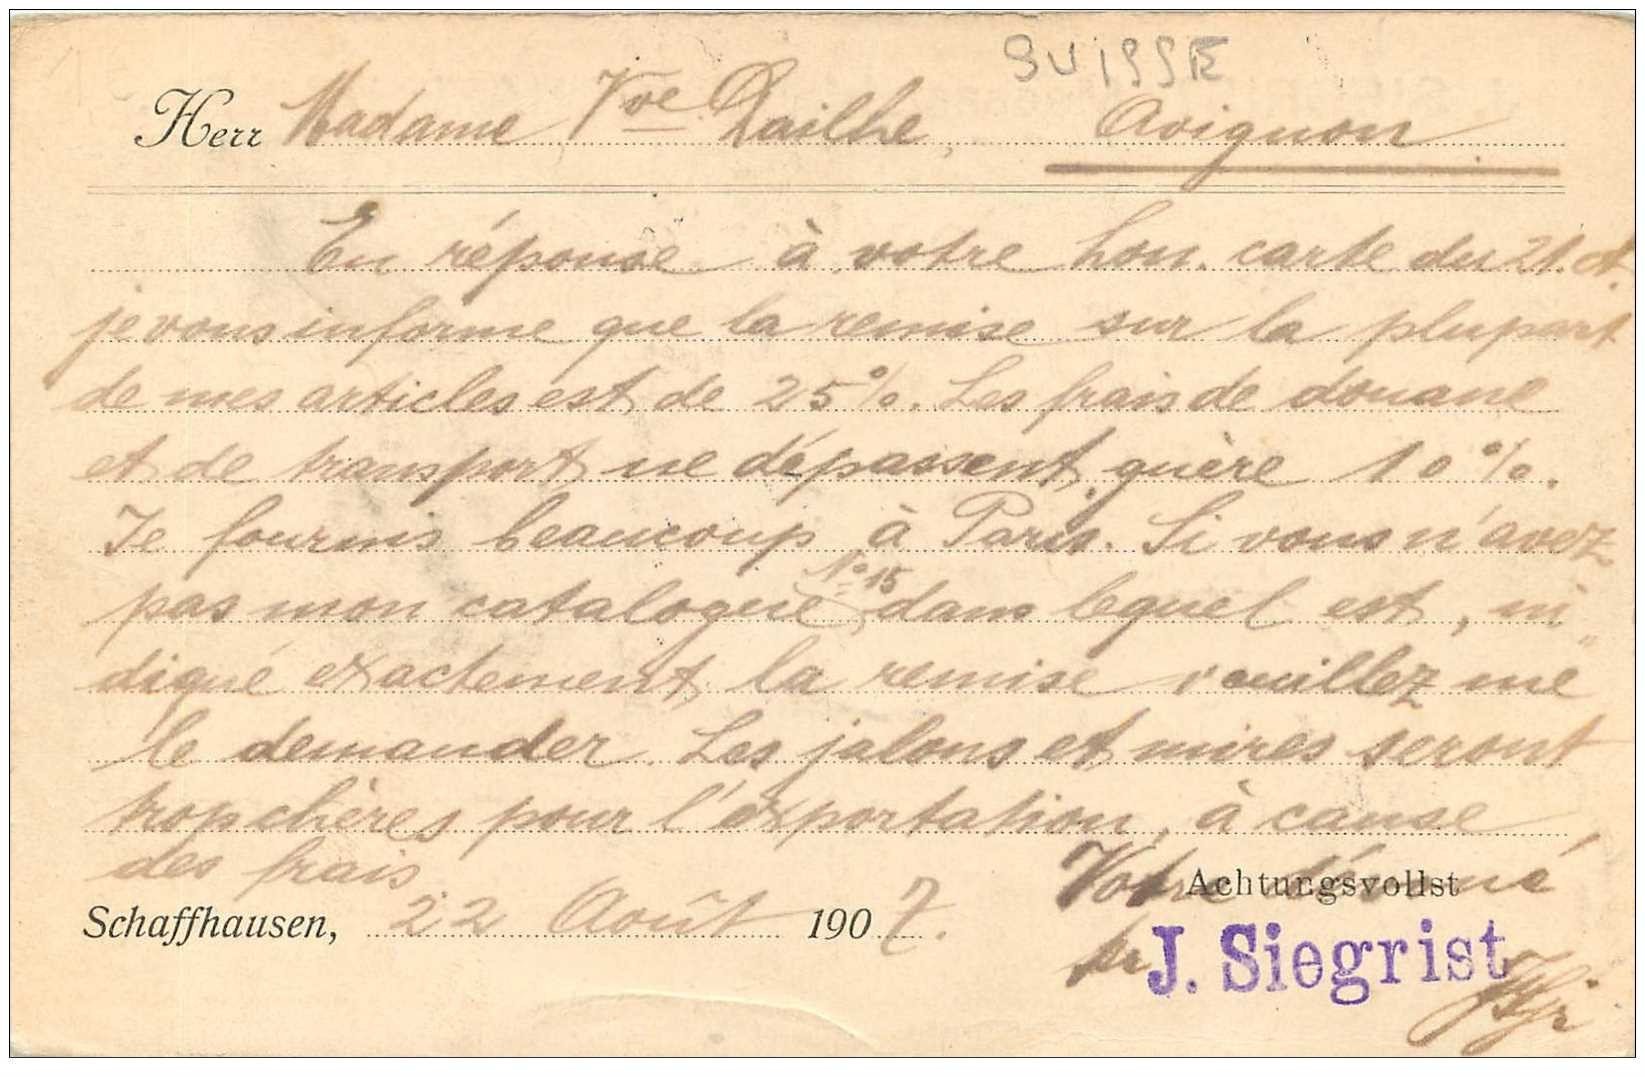 SUISSE
Herr Madame Vve Dailhe, Avignon.
En réponse à votre hon. carte du 21. ct.
je vous informe que la remise sur la plupart
de mes articles est de 25%. Les frais de douane
et de transport ne dépassent guère 10%.
Je fournis beaucoup à Paris. Si vous n'avez
pas mon catalogue No 15, dans lequel est, in
diqué exactement la remise veuillez me
le demander. Les jalons et mires seront
trop chères pour l'exportation, à cause
des frais
Votre dévoué
Achtungsvollst
Schaffhausen, 22 Août 1907.
pr J. Siegrist